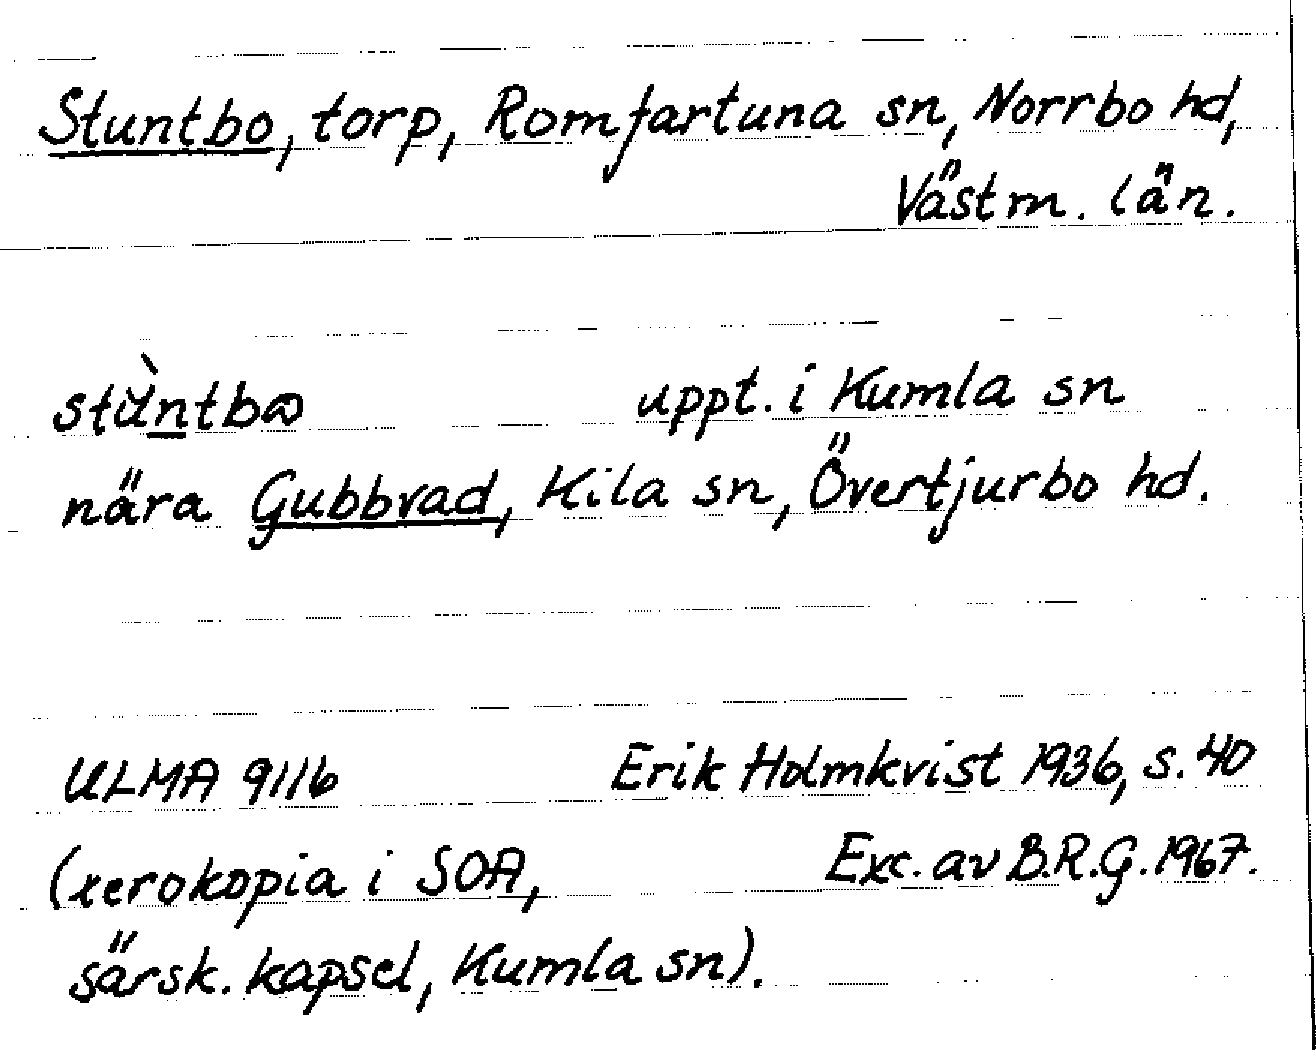 Stuntbo, torp, Romfartuna sn, Norrbo hd,
Västm. län.
stu̇̀n̲tbꝏ uppt. i Kumla sn
nära Gubbvad, Kila sn, Övertjurbo hd.
ULMA 9116 Erik Holmkvist 1936, s. 40
(xerokopia i SOA, Exc. av B.R.G. 1967.
särsk. kapsel, Kumla sn).